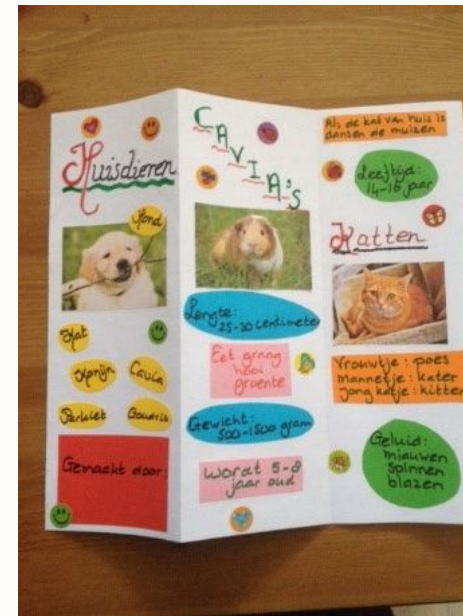 Huisdieren
Hond
Kat
Konijn
Cavia
Parkiet
Goudvis
Gemaakt door:
CAVIA's
Lengte:
25-30 centimeter
Eet graag:
hooi
groente
Gewicht:
500-1500 gram
wordt 5-8
jaar oud
Als de kat van huis is
dansen de muizen
Leeftijd:
14-16 jaar
Katten
Vrouwtje: poes
mannetje: kater
jong katje: kitten
Geluid:
miauwen
spinnen
blazen